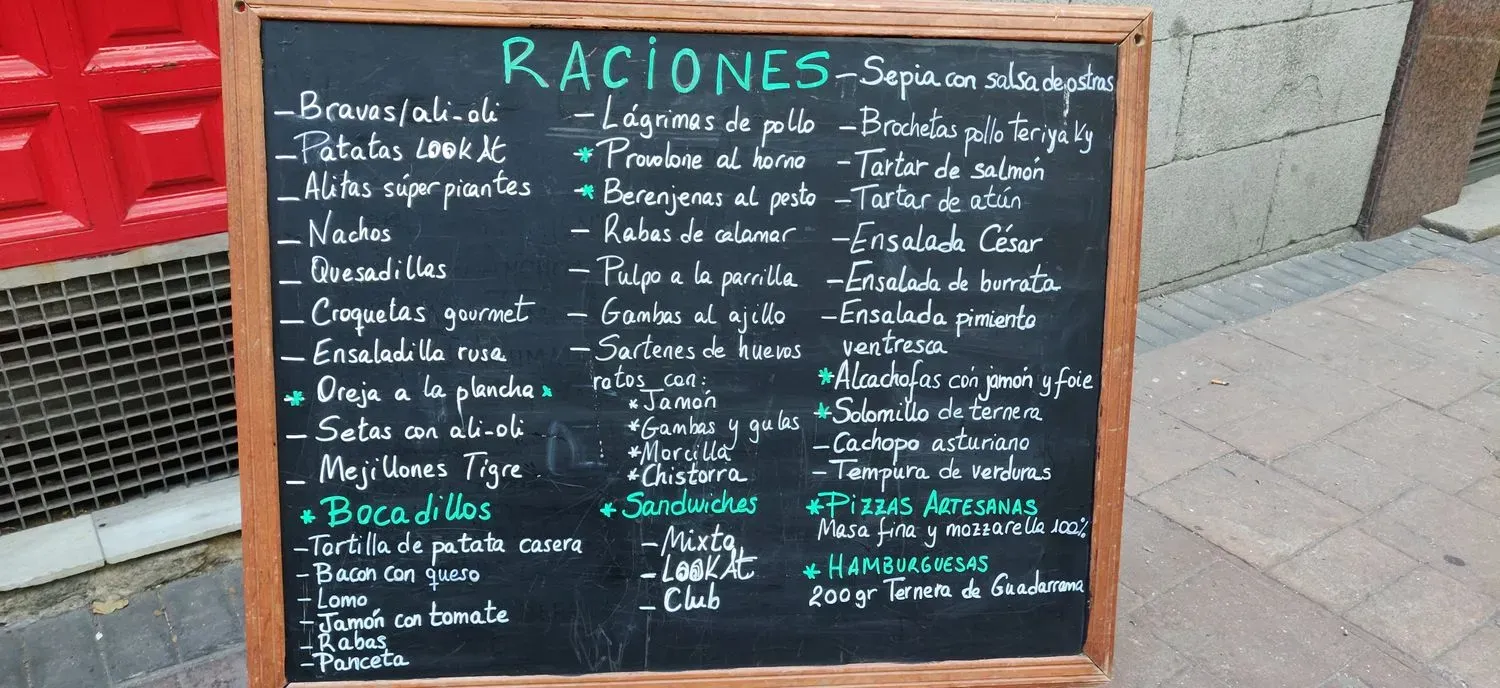 RACIONES
- Bravas/ali-oli
- Patatas LOOK At
- Alitas súper picantes
- Nachos
- Quesadillas
- Croquetas gourmet
- Ensaladilla rusa
* Oreja a la plancha *
- Setas con ali-oli
- Mejillones Tigre
- Lágrimas de pollo
* Provolone al horno
* Berenjenas al pesto
- Rabas de calamar
- Pulpo a la parrilla
- Gambas al ajillo
- Sartenes de huevos
rotos con:
* Jamón
* Gambas y gulas
* Morcilla
* Chistorra
- Sepia con salsa de ostras
- Brochetas pollo Teriyaky
- Tartar de salmón
- Tartar de atún
- Ensalada César
- Ensalada de burrata
- Ensalada pimiento
ventresca
* Alcachofas con jamón y foie
* Solomillo de ternera
- Cachopo asturiano
- Tempura de verduras
* Bocadillos
- Tortilla de patata casera
- Bacon con queso
- Lomo
- Jamón con tomate
- Rabas
- Panceta
* Sandwiches
- Mixto
- LOOK At
- Club
* PIZZAS ARTESANAS
Masa fina y mozzarella 100%
* HAMBURGUESAS
200gr Ternera de Guadarrama